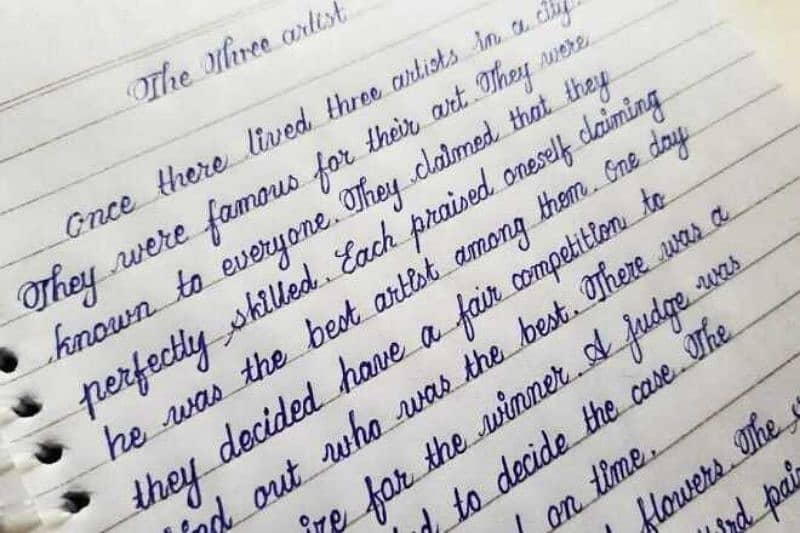 The Three artist
Once there lived three artists in a city.
They were famous for their art. They were
known to everyone. They claimed that they
perfectly skilled. Each praised oneself claiming
he was the best artist among them. One day
they decided have a fair competition to
out who was the best. There was a
for the winner. A judge was
to decide the case. The
on time.
flowers. The